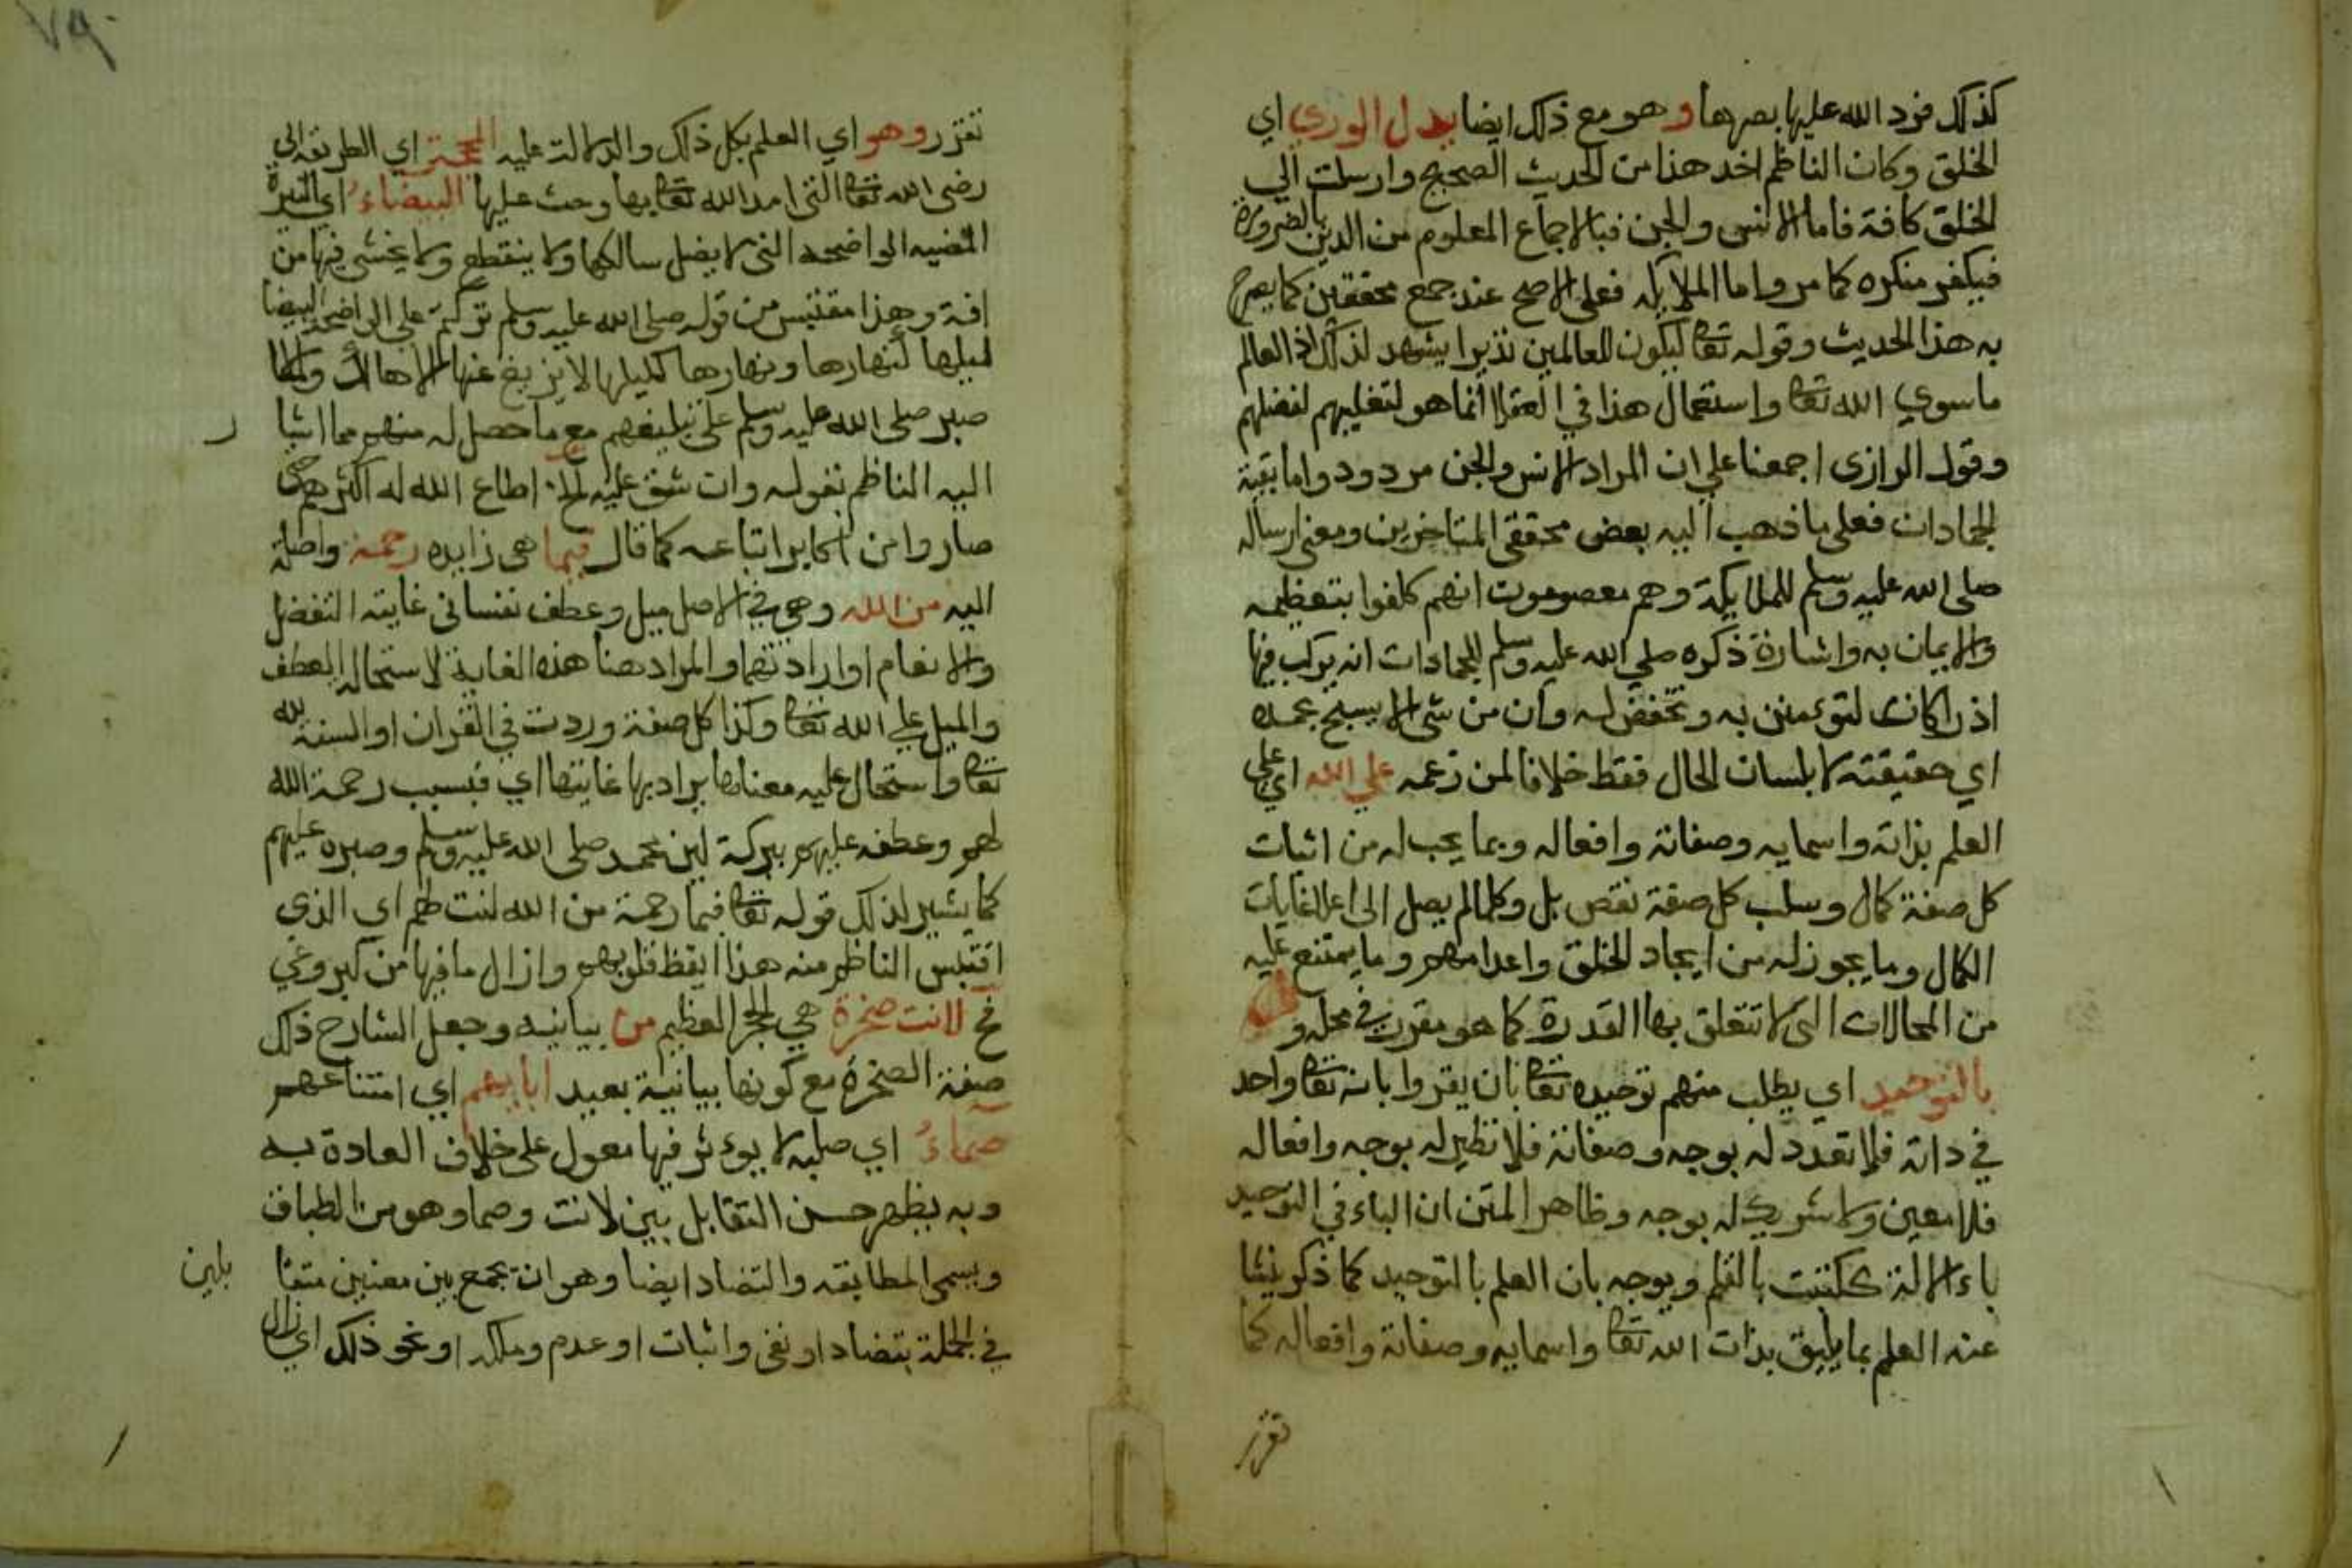 كذلك فرد الله عليها بصرها وهو مع ذلك ايضا يدل الوري اي
الخلق وكان الناظم اخد هذا من الحديث الصحيح وارسلت الي
الخلق كافة فاما الانس والجن فبالاجماع المعلوم من الدين بالضرورة
فيكفر منكره كما مر واما الملايكه فعلى الاصح عند جمع محققين كما يصرح
به هذا الحديث وقوله تعا ليكون للعالمين نذيرا يشهد لذلك اذ العالم
ما سوي الله تعا واستعمال هذا في العقلا انما هو لتغليبهم لفضلهم
وقول الرازى اجمعنا علي ان المراد الانس والجن مردود واما بقية
الجمادات فعلى ما ذهب اليه بعض محققى المتاخرين ومعنى ارساله
صلى الله عليه وسلم للملايكة وهم معصومون انهم كلفوا بتعظيمه
والايمان به واشارة ذكره صلي الله عليه وسلم للجمادات انه يركب فيها
ادراكات لتوءمنن به وتخضع له وان من شى الا يسبح بحمده
اي حقيقته لا بلسان الحال فقط خلافا لمن زعمه علي الله اي علي
العلم بذاته واسمايه وصفاته وافعاله وبما يجب له من اثبات
كل صفة كمال وسلب كل صفة نقص بل وكلما لم يصل الى اعلا غايات
الكمال وما يجوز له من ايجاد الخلق واعدامهم وما يمتنع عليه
من المحالات التى لا تتعلق بها القدرة كما هو مقرر في محله و
بالتوحيد اي يطلب منهم توحيده تعا بان يقروا بانه تعا واحد
في ذاته فلا تعدد له بوجه وصفاته فلا نظير له بوجه وافعاله
فلا معين ولا شريك له بوجه وظاهر المتن ان الباء في التوحيد
باء الالة ككتبت بالقلم ويوجه بان العلم بالتوحيد كما ذكر ينشا
عنه العلم بما يليق بذات الله تعا واسمايه وصفاته وافعاله كما
تقرر
٧٩
تقرر وهو اي العلم بكل ذلك والدلالة عليه المحجة اي الطريقة الي
رضى الله تعا التى امر الله تعا بها وحث عليها البيضاء اي النيرة
المضيه الواضحه التى لا يضل سالكها ولا ينقطع ولا يخشى فيها من
افة وهذا مقتبس من قوله صلى الله عليه وسلم تركتم على الواضحة البيضا
ليلها كنهارها ونهارها كليلها لا يزيغ عنها الا هالك ولما
صبر صلى الله عليه وسلم على تبليغهم مع ما حصل له منهم مما اشا
ر
اليه الناظم بقوله وان شق عليه الخ اطاع الله له اكثرهم حتى
صاروا من اكابر اتباعه كما قال فبما هى زايده رحمة واصلة
اليه من الله وهي في الاصل ميل وعطف نفسانى غايته التفضل
والانعام او ارادتهما والمراد هنا هذه الغاية لاستحالة العطف
والميل علي الله تعا وكذا كل صفة وردت في القران او السنة لله
تعا واستحال عليه معناها يراد بها غايتها اي فبسبب رحمة الله
لهم وعطفه عليهم ببركة لين محمد صلى الله عليه وسلم وصبره عليهم
كما يشير لذلك قوله تعا فبما رحمة من الله لنت لهم اي الذي
اقتبس الناظم منه هذا ايقظ قلوبهم وازال ما فيها من كبر وغي
فح لانت صخرة هي الحجر العظيم من بيانيه وجعل الشارح ذلك
صفة الصخرة مع كونها بيانية بعيد ابايهم اي امتناعهم
صماء اي صلبه لا يوءثر فيها معول على خلاف العادة به
وبه يظهر حسن التقابل بين لانت وصما وهو من الطباق
ويسمى المطابقه والتضاد ايضا وهو ان تجمع بين معنيين متقا
بلين
في الجملة بتضاد او نفى واثبات او عدم وملكه او نحو ذلك اي زال